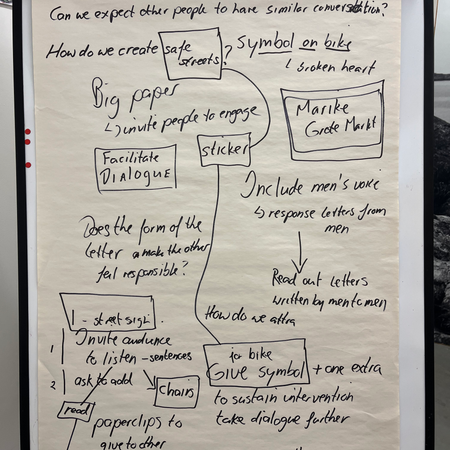 Can we expect other people to have similar conversation?
How do we create safe streets?
Symbol on bike
↳ broken heart
Big paper
↳ invite people to engage
Marike
Grote Markt
sticker
Facilitate
DIALOGUE
Include men's voice
↳ response letters from
men
Does the form of the
letter make the other
feel responsible?
Read out letters
written by men to men
How do we attra
1 - street sign.
1 Invite audience
to listen - sentences
2 ask to add
Chairs
read
paperclips to
give to other
to bike
Give symbol + one extra
to sustain intervention
take dialogue further